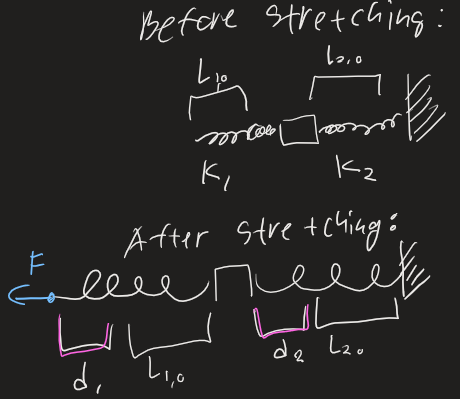 Before stretching:
L1,0 L2,0
K1 K2
After stretching:
F
d1 L1,0 d2 L20